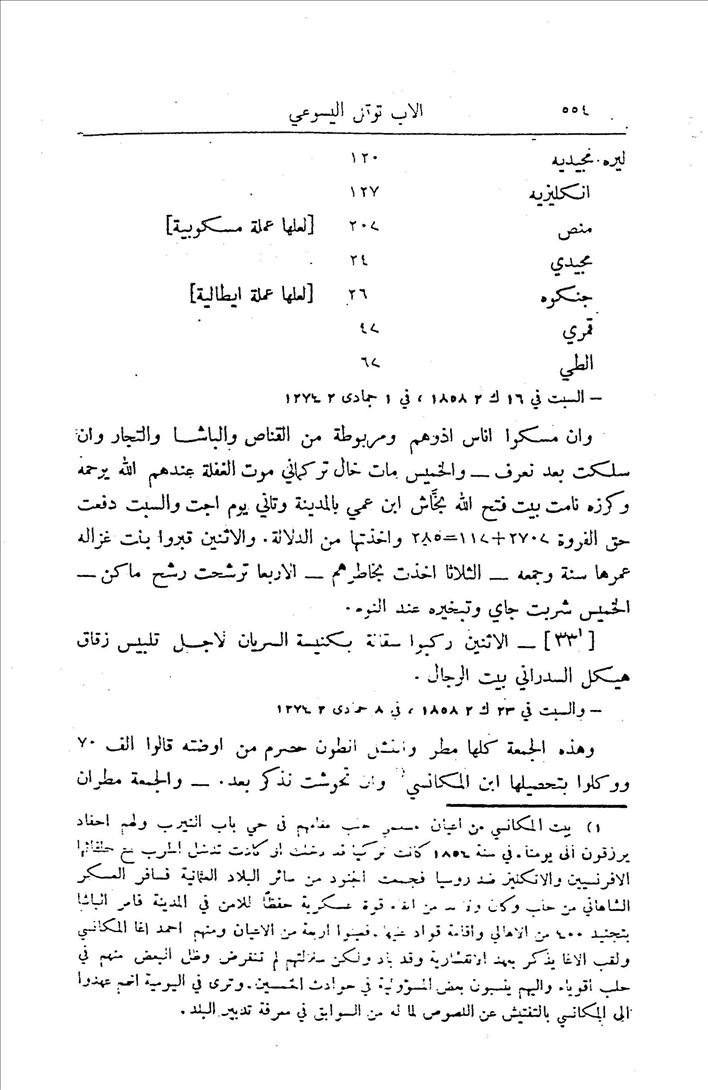 ٥٥٤ الاب توتل اليسوعي
ليره مجيديه ١٢٠
انكليزيه ١٢٧
منص ٢٠٧ [لعلها عملة مسكوبية]
مجيدي ٢٤
جنكوه ٢٦ [لعلها عملة ايطالية]
قمري ٤٧
الطي ٦٧
— السبت في ١٦ ك ٢ ١٨٥٨ ، في ١ جمادى ٢ ١٢٧٤
وان مسكوا اناس اذوهم ومربوطة من القناص والباشا والتجار وان
سلكت بعد نعرف — والخميس مات خال تركماني موت الغفلة عندهم الله يرحمه
وكرزه نامت بيت فتح الله بجاش ابن عمي بالمدينة وتاني يوم اجت والسبت دفعت
حق الفروة ٢٧٠٧+١١٧=٢٨٥ واخذتها من الدلالة. والاثنين قبروا بنت غزاله
عمرها سنة وجمعه — الثلاثا اخذت بخاطرهم — الاربعا ترشحت رشح ماكن —
الخميس شربت جاي وتبخيره عند النوم.
[٣٣] — الاثنين ركبوا سقالة بكنيسة السريان لاجل تلبيس زقاق
هيكل السدراني بيت الرجال .
— والسبت في ٢٣ ك ٢ ١٨٥٨ ، في ٨ جمادى ٢ ١٢٧٤
وهذه الجمعة كلها مطر انطون حصرم من اوضته قالوا الف ٧٠
ووكلوا بتحصيلها ابن المكانسي وان تحوشت نذكر بعد. — والجمعة مطران
١) بيت المكانسي من اعيان حلب مقامهم في حي باب النيرب ولهم احفاد
يرزقون الى يومنا. في سنة ١٨٥٤ كانت تركيا قد دخلت او كادت تدخل الحرب مع حلفائها
الافرنسيين والانكليز ضد روسيا فجمعت الجنود من سائر البلاد العثمانية فسافر العسكر
الشاهاني من حلب وكان قوة عسكرية حفظا للامن في المدينة فامر الباشا
بتجنيد ٤٠٠ من الاهالي واقامة قواد عليها. فعينوا اربعة من الاعيان ومنهم احمد اغا المكانسي
ولقب الاغا يذكر بعهد الانقشارية وقد باد ولكن سلالتهم لم تنقرض وظل البعض منهم في
حلب اقوياء واليهم ينسبون بعض المسؤولية في حوادث الخمسين. وترى في اليومية انهم عهدوا
الى المكانسي بالتفتيش عن اللصوص لما له من السوابق في معرفة تدبير البلد.